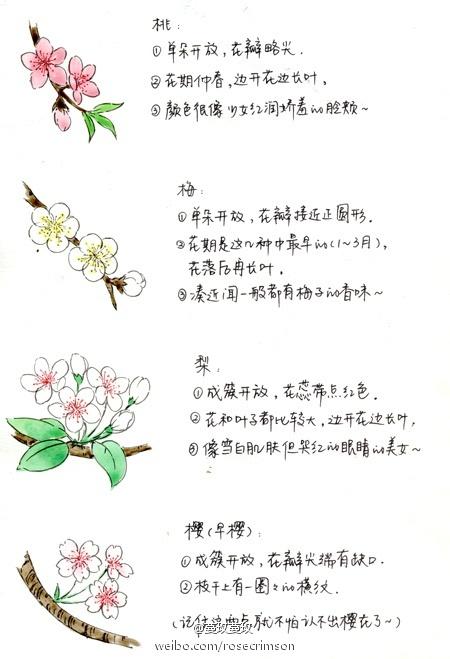 桃:
①单朵开放,花瓣略尖.
②花期仲春,边开花边长叶,
③颜色很像少女红润娇羞的脸颊~
梅:
①单朵开放,花瓣接近正圆形.
②花期是这几种中最早的(1~3月),
花落后再长叶.
③凑近闻一般都有梅子的香味~
梨:
①成簇开放,花蕊带点红色.
②花和叶子都比较大,边开花边长叶,
③像雪白肌肤但哭红的眼睛的美女~
樱(早樱):
①成簇开放,花瓣尖端有缺口.
②枝干上有一圈々的横纹.
(记住这两点就不怕认不出樱花了~)
@蔓玫蔓玫
weibo.com/rosecrimson